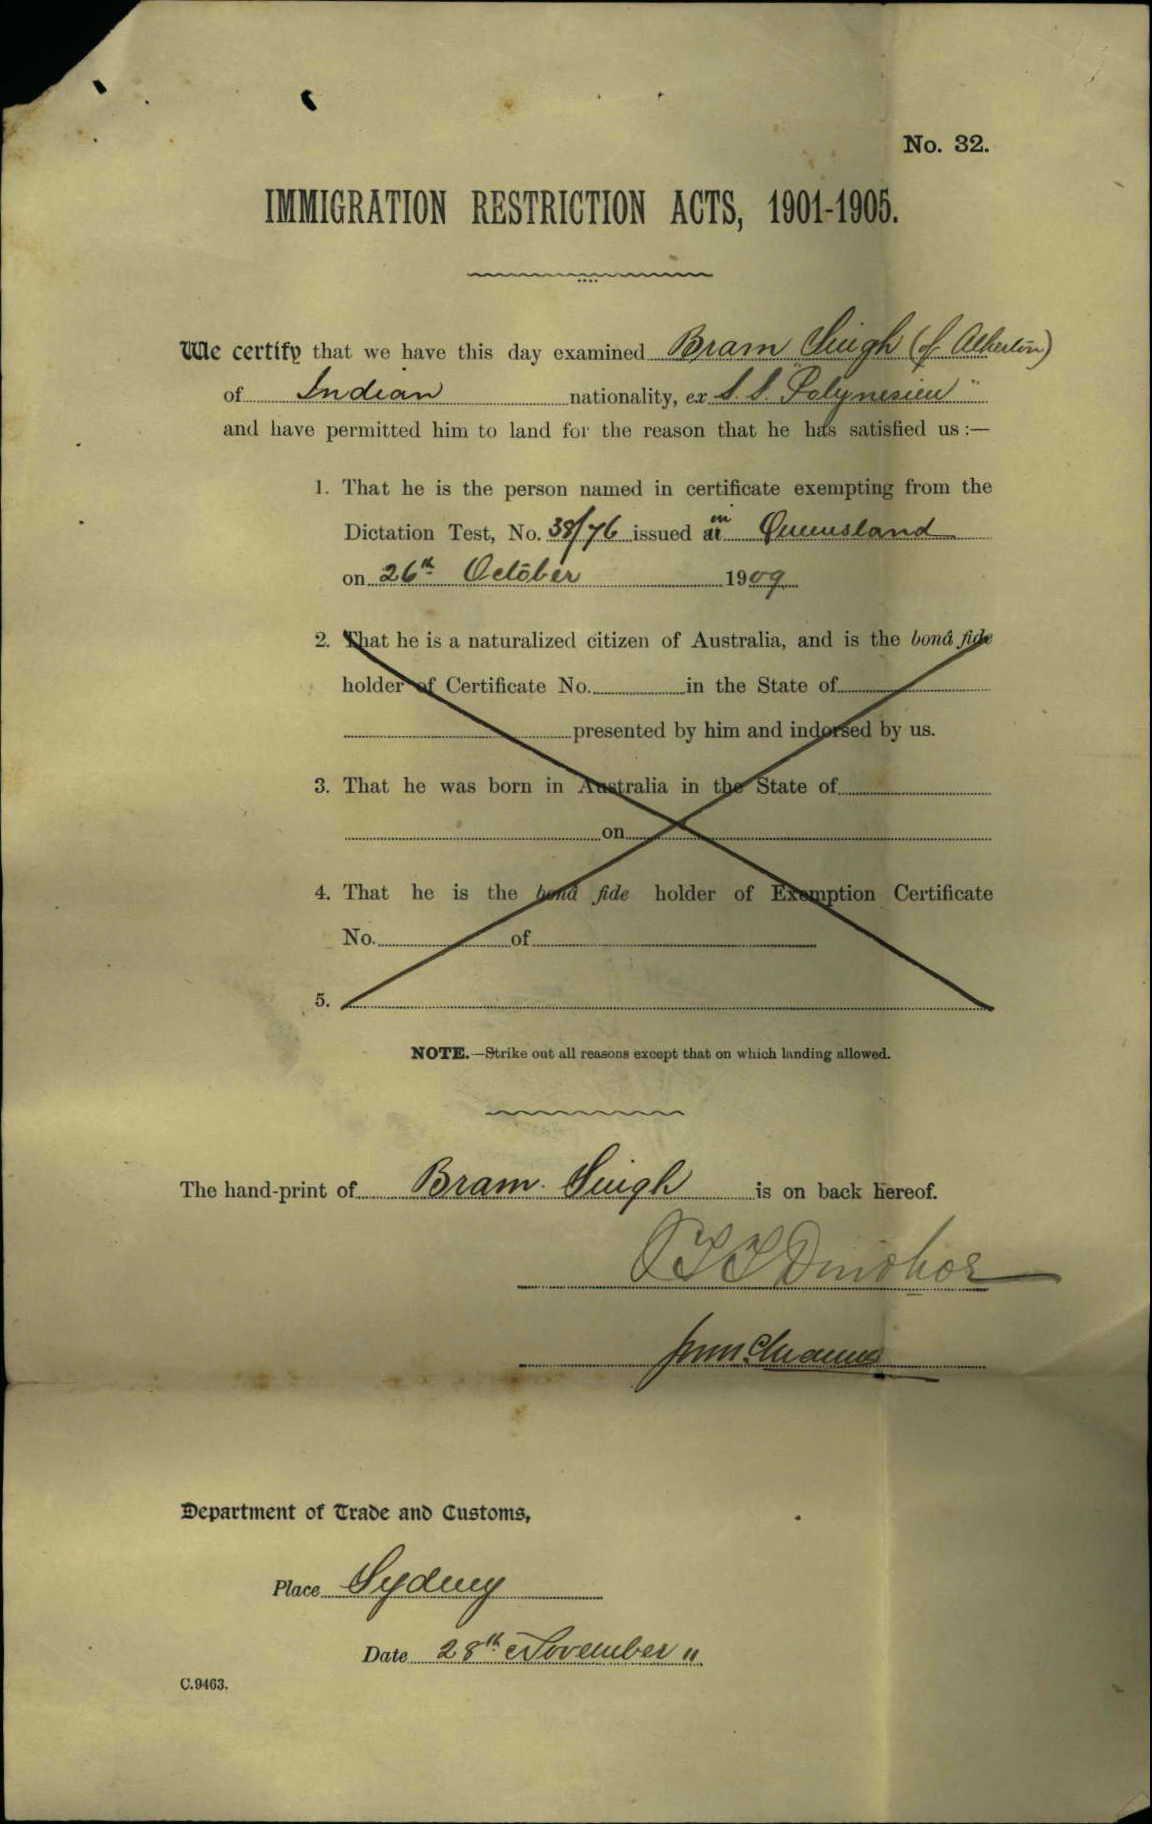 No. 32.
IMMIGRATION RESTRICTION ACTS, 1901-1905.
We certify that we have this day examined Bram Singh (of Atherton)
of Indian nationality, ex S.S. "Polynesien"
and have permitted him to land for the reason that he has satisfied us :—
1. That he is the person named in certificate exempting from the
Dictation Test, No. 38/76 issued at in Queensland
on 26th October 1909
2. That he is a naturalized citizen of Australia, and is the bonâ fide
holder of Certificate No. in the State of
presented by him and indorsed by us.
3. That he was born in Australia in the State of
on
4. That he is the bonâ fide holder of Exemption Certificate
No. of
5.
NOTE.—Strike out all reasons except that on which landing allowed.
The hand-print of Bram Singh is on back hereof.
Department of Trade and Customs,
Place Sydney
Date 28th November 11
C.9463.